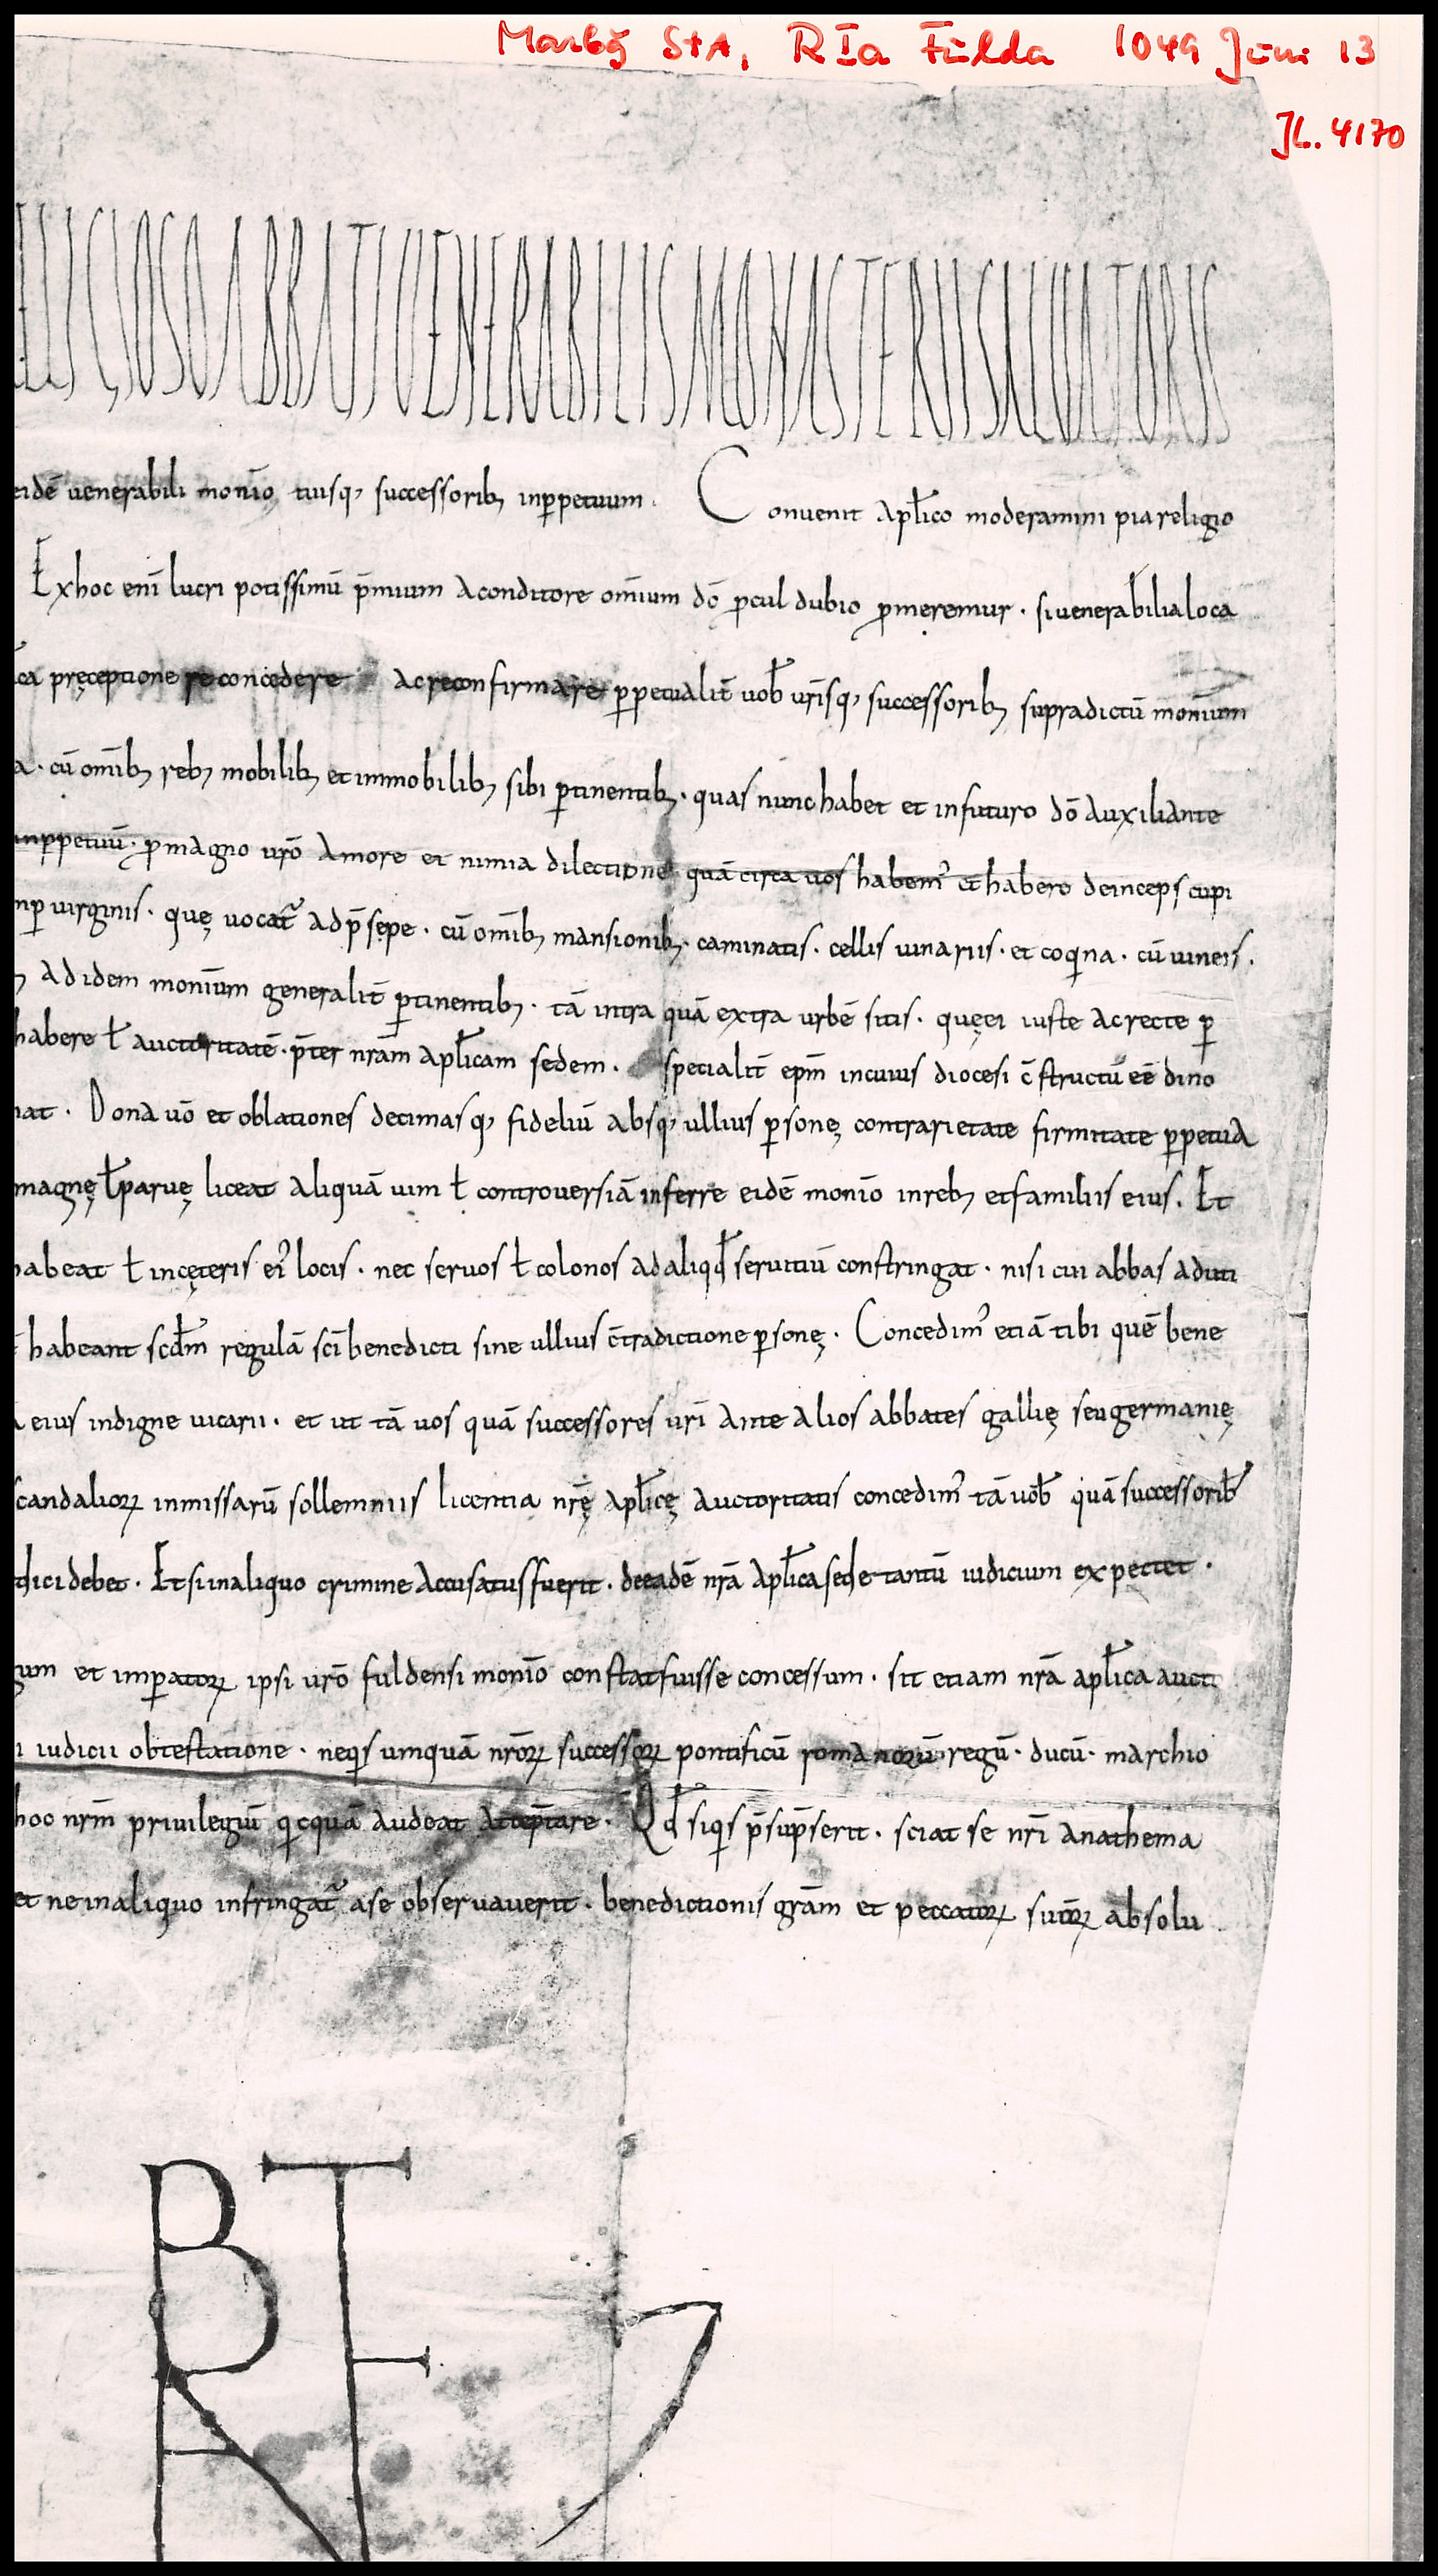 Marbg StA, R Ia Fulda 1049 Juni 13
JL. 4170
RELIGIOSO ABBATI VENERABILIS MONASTERII SALVATORIS
eidē uenerabili monio tuisq; successorib; inꝑpetuum. Conuenit apƚico moderamini pia religio
Ex hoc enī lucri potissimū p̄mium a conditore om̄ium dō ꝓcul dubio ꝓmeremur · si uenerabilia loca
ica pręceptione re concedere ac reconfirmare ꝑpetualit̄ uob̄ ur̄isq; successorib; supradictū moniūm
a · cū om̄ib; reb; mobilib; et immobilib; sibi ꝑtinentib; · quas nunc habet et in futuro dō auxiliante
inꝑpetuū · ꝓ magno ur̄o amore et nimia dilectione quā circa uos habem᾽ et habere deinceps cupi
mꝑ uirginis · quę uocat᷑ ad p̄sepe · cū om̄ib; mansionib; · caminatis · cellis uinariis · et coqina · cū uineis ·
; ad idem moniūm generalit̄ ꝑtinentib; · tā intra quā extra urbē sitis · quę ei iuste ac recte ꝑ
habere ƚ auctoritatē · p̄ter nr̄am apƚicam sedem · specialit̄ ep̄m in cuius diocesi c̄structū eē dino
nat · Dona uō et oblationes decimasq; fideliū absq; ullius ꝑsonę contrarietate firmitate ꝑpetua
magnę ƚ paruę liceat aliquā uim ƚ controuersiā inferre eidē monio in reb; et familiis eius. Et
habeat ƚ in cęteris ei᾽ locis · nec seruos ƚ colonos ad aliqd̄ seruitiū constringat · nisi cui abbas aduti
habeant scd̄m regulā sc̄i benedicti sine ullius c̄tradictione ꝑsonę · Concedim᾽ etiā tibi quē bene
a eius indigne uicarii · et ut tā uos quā successores ur̄i ante alios abbates gallię seu germanię
scandalioꝝ in missarū sollemniis licentia nr̄ę apƚicę auctoritatis concedim᾽ tā uob̄ quā successorib̄
dici debet · Et si in aliquo crimine accusatus fuerit · de eadē nr̄a apƚica sede tantū iudicium expectet ·
gum et imꝑatoꝝ ipsi ur̄o fuldensi monio constat fuisse concessum · sit etiam nr̄a apƚica aucto
i iudicii obtestatione · neqis umquā nr̄oꝝ successoꝝ pontificū romanorū regū · ducū · marchio
hoc nr̄m priuilegiū qicquā audeat attep̄tare · Qd̄ siqis p̄sup̄serit · sciat se nr̄i anathema
et ne in aliquo infringat᷑ a se obseruauerit · benedictionis gr̄am et peccatoꝝ suoꝝ absolu